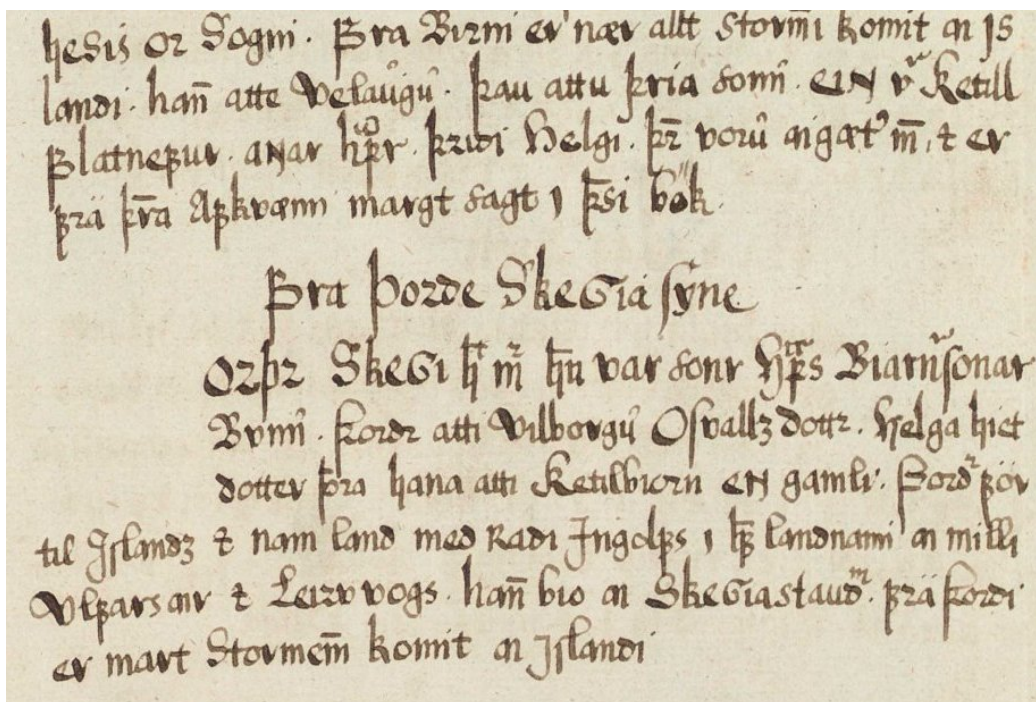 hesis or Sogni. Fra Birni er nær allt Stormī komit an Is
landi. han̄ atte Velaūgū. þau attu þria sonū. EIN v͛ Ketill
Flatnefur. aɴar hr̄pr. þridi Helgi. þr̄ vorū aigæt᾽ m̄. ⁊ er
frä þr̄a Afkvæmi margt sagt ı þsi bök.
Fra Þorde SkeGia syne
orþr SkeGi h̄t m̄ hn̄ var sonr Hr̄ps Biarnͬsonar
Bvnū. Þordr atti Vilborgū Osvallz dottr. Helga hiet
dotter þra hana atti Ketilbiorn EN gamli. Þordͬ för
til Jslandz ⁊ nam land med Radi Ingolfs ı hs̄ landnami an milli
Vlfars ar ⁊ Leirvvogs. han̄ bio an SkeGiastaudͫ. frä Þordi
er mart Stormen̄i komit an Jslandi